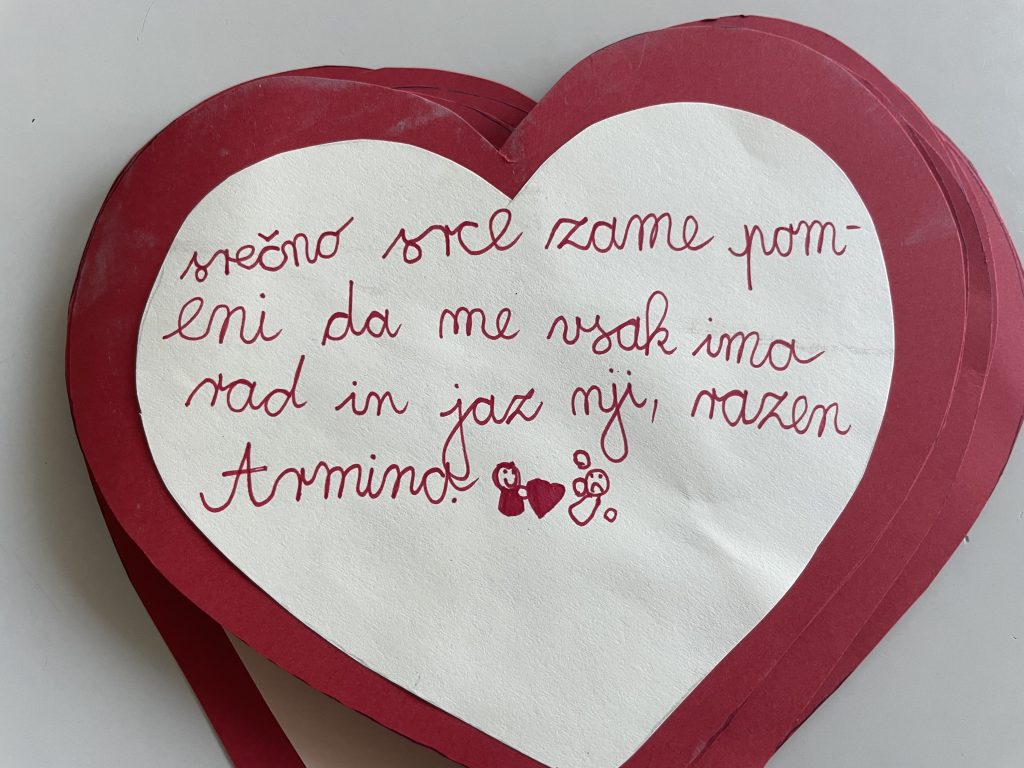 srečno srce zame pom-
eni da me vsak ima
rad in jaz nji, razen
Armina.